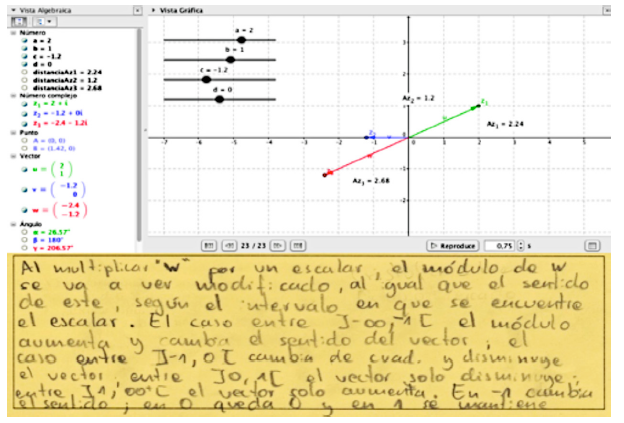 Vista Algebraica
Vista Gráfica
Número
a = 2
b = 1
c = -1.2
d = 0
distanciaAz1 = 2.24
distanciaAz2 = 1.2
distanciaAz3 = 2.68
Número complejo
z₁ = 2 + i
z₂ = -1.2 + 0i
z₃ = -2.4 - 1.2i
Punto
A = (0, 0)
B = (1.42, 0)
Vector
u = ( 2 1 )
v = ( -1.2 0 )
w = ( -2.4 -1.2 )
Ángulo
α = 26.57°
β = 180°
γ = 206.57°
a = 2
b = 1
c = -1.2
d = 0
3
2
1
-1
-2
-7 -6 -5 -4 -3 -2 -1 0 1 2 3 4 5 6
Az₂ = 1.2
z₁
u
Az₁ = 2.24
z₂
v
w
Az₃ = 2.68
23 / 23
Reproduce 0,75 s
Al multiplicar "w" por un escalar, el módulo de w
se va a ver modificado, al igual que el sentido
de este, según el intervalo en que se encuentre
el escalar. El caso entre ]-∞,-1[ el módulo
aumenta y cambia el sentido del vector, el
caso entre ]-1, 0[ cambia de cuad. y disminuye
el vector, entre ]0, 1[ el vector solo disminuye;
entre ]1, ∞⁺[ el vector solo aumenta. En -1 cambia
el sentido; en 0 queda 0 y en 1 se mantiene